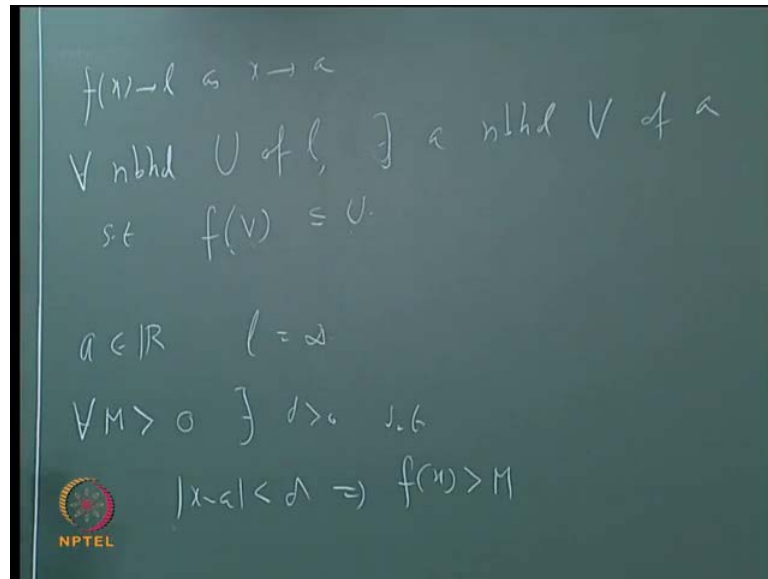 f(x)→l as x→a
∀ nbhd U of l, ∃ a nbhd V of a
s.t f(V) ⊆ U.
a ∈ ℝ l = ∞
∀M > 0 ∃ δ>0 s.t
|x-a| < δ ⇒ f(x) > M
NPTEL